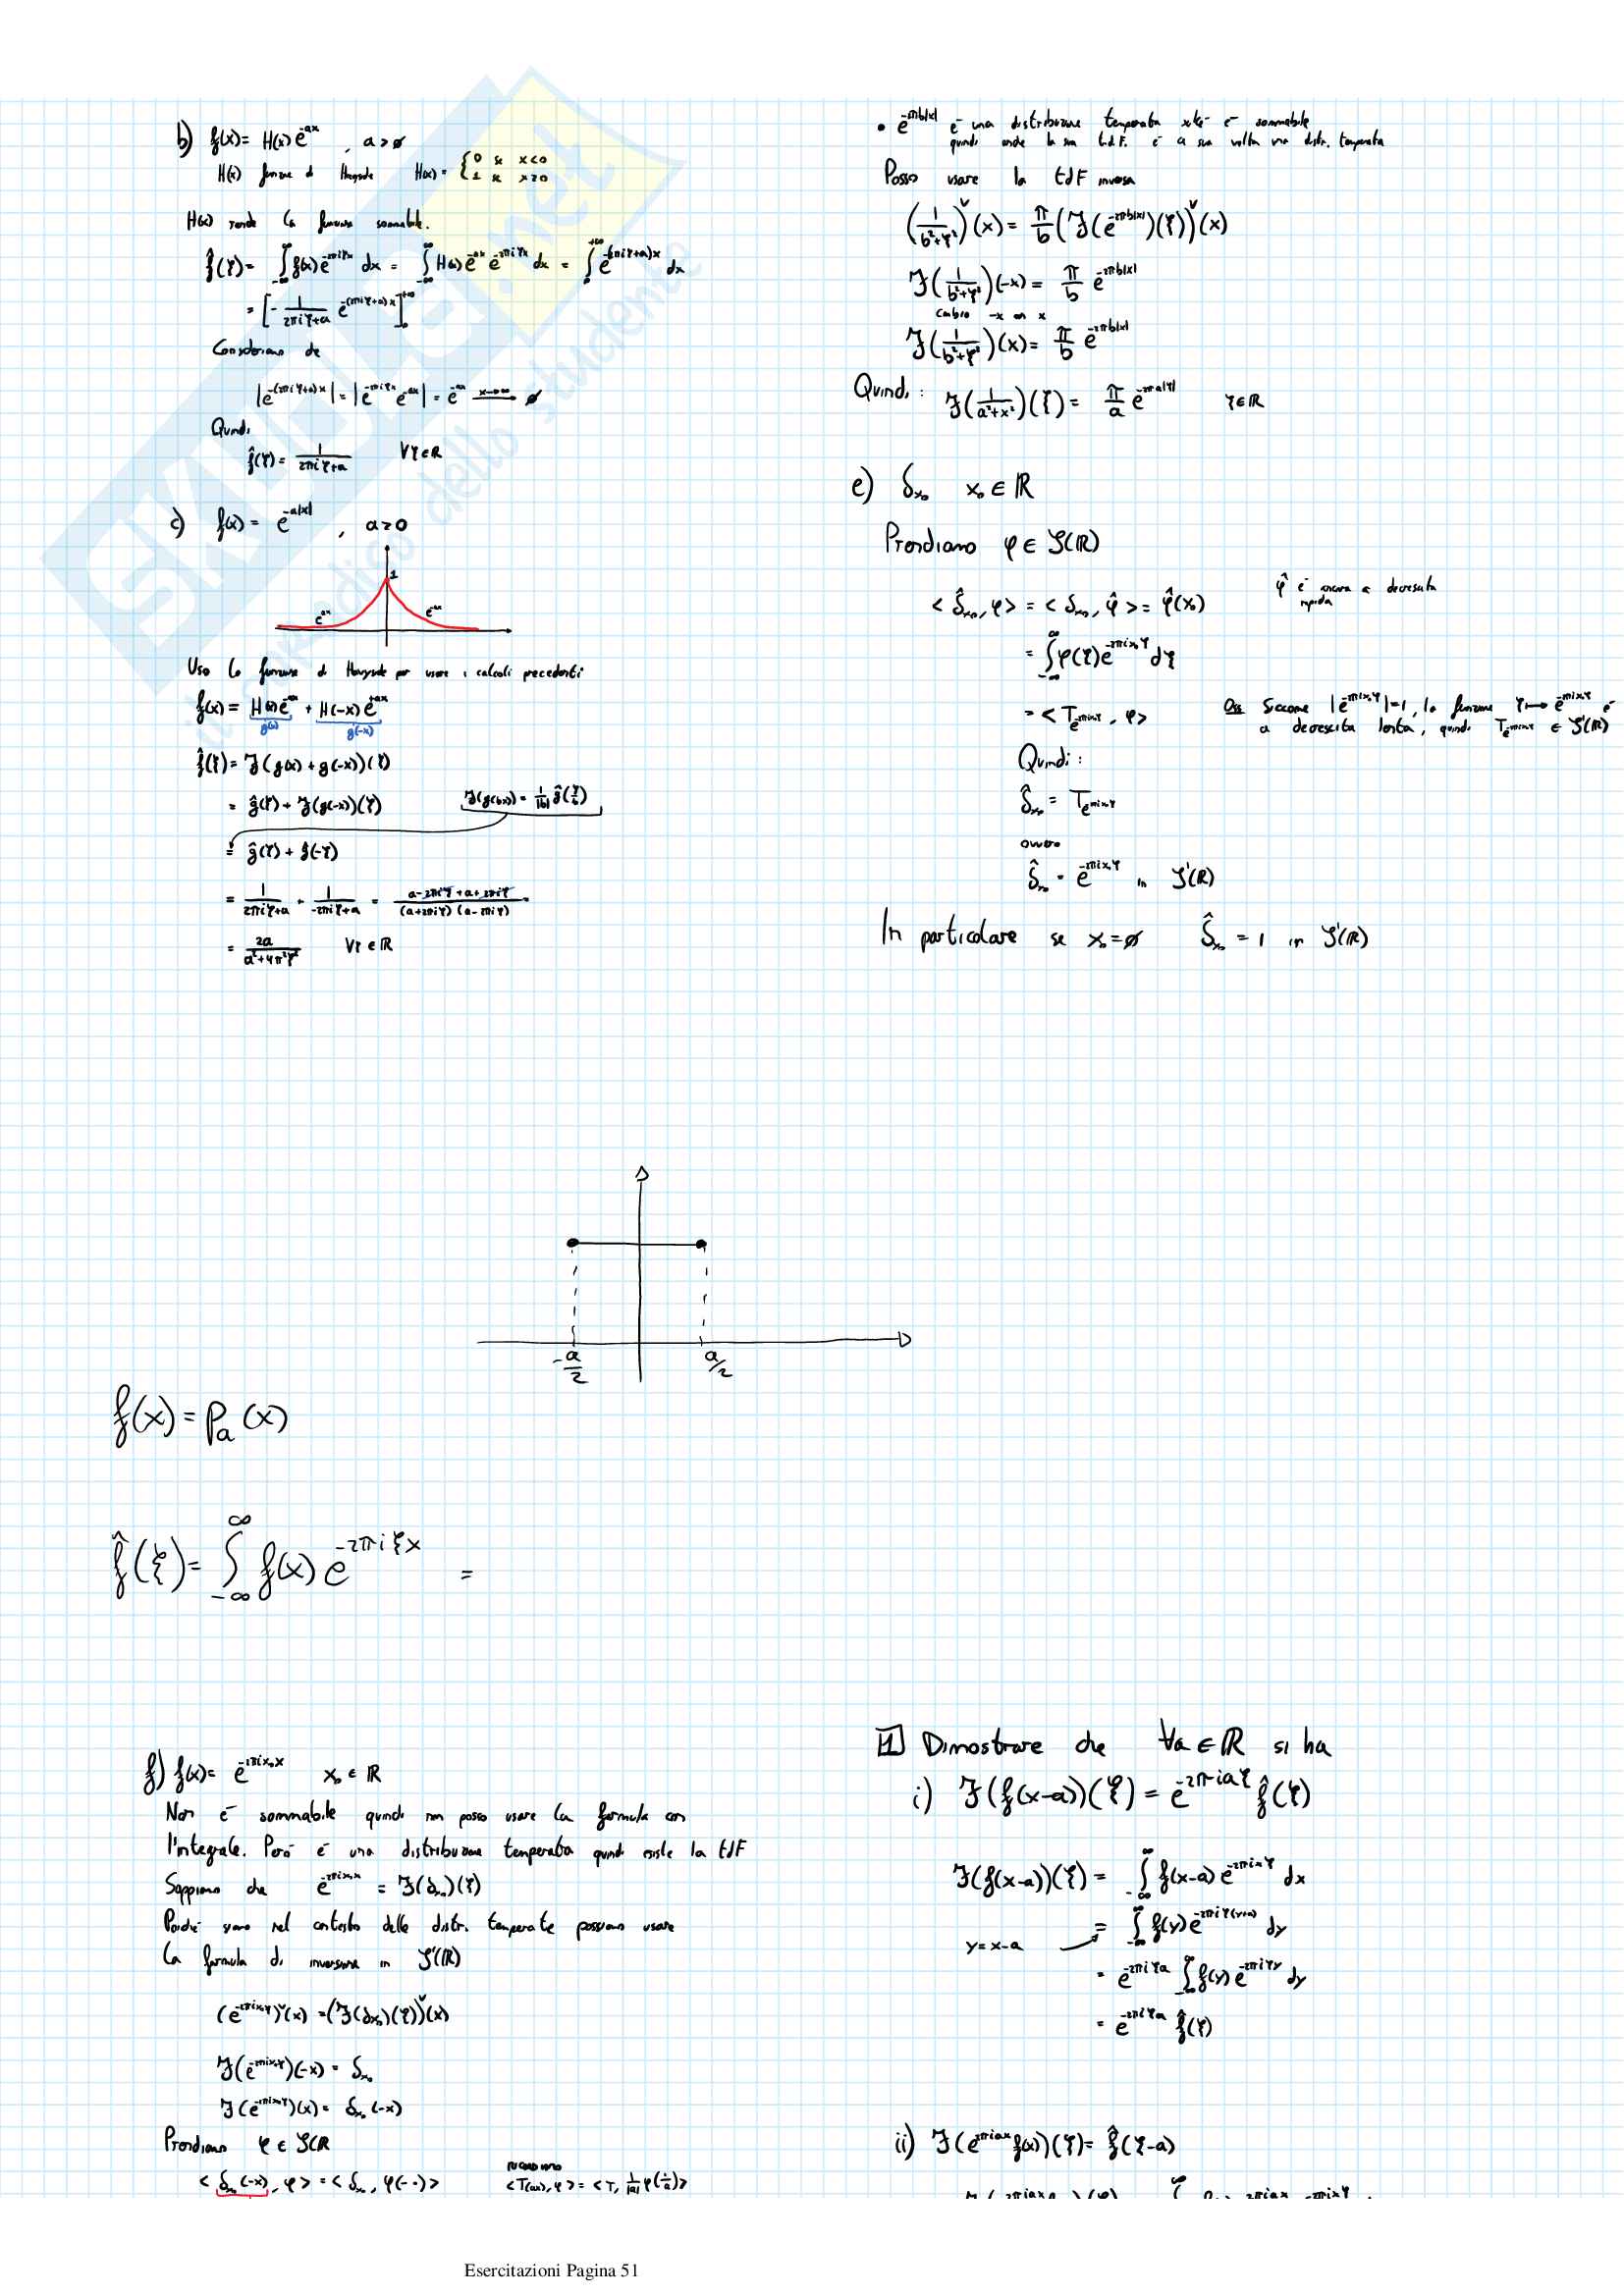 b) f(x)= H(x) e^{-ax} , a>0
H(x) funzione di Heaviside H(x)= { 0 se x<0
1 se x≥0
H(x) rende la funzione sommabile.
f̂(ξ)= ∫_{-∞}^{∞} f(x) e^{-2πiξx} dx = ∫_{-∞}^{∞} H(x) e^{-ax} e^{-2πiξx} dx = ∫_0^{+∞} e^{-(2πiξ+a)x} dx
= [ - 1/(2πiξ+a) e^{-(2πiξ+a)x} ]_0^{+∞}
Consideriamo che
|e^{-(2πiξ+a)x}| = |e^{-2πiξx} e^{-ax}| = e^{-ax} →^{x→∞} 0
Quindi
f̂(ξ)= 1/(2πiξ+a) ∀ξ∈ℝ
c) f(x)= e^{-a|x|} , a>0
1
e^{ax} e^{-ax}
Uso la funzione di Heaviside per usare i calcoli precedenti
f(x)= H(x)e^{-ax} + H(-x)e^{+ax}
g(x) g(-x)
f̂(ξ)= ℱ(g(x)+g(-x))(ξ)
= ĝ(ξ)+ℱ(g(-x))(ξ) ℱ(g(bx))= 1/|b| ĝ(ξ/b)
= ĝ(ξ)+ĝ(-ξ)
= 1/(2πiξ+a) + 1/(-2πiξ+a) = (a-2πiξ+a+2πiξ)/((a+2πiξ)(a-2πiξ)) =
= 2a/(a²+4π²ξ²) ∀ξ∈ℝ
• e^{-2πb|x|} è una distribuzione temperata xké è sommabile
quindi anche la sua t.d.F. è a sua volta una distr. temperata
Posso usare la tdF inversa
(1/(b²+ξ²))ˇ(x)= π/b (ℱ(e^{-2πb|x|})(ξ))ˇ(x)
ℱ(1/(b²+ξ²))(-x)= π/b e^{-2πb|x|}
cambio -x con x
ℱ(1/(b²+ξ²))(x)= π/b e^{-2πb|x|}
Quindi: ℱ(1/(a²+x²))(ξ)= π/a e^{-2πa|ξ|} ξ∈ℝ
e) δ_{x₀} x₀∈ℝ
Prendiamo φ∈𝒮(ℝ)
<δ̂_{x₀}, φ> = <δ_{x₀}, φ̂> = φ̂(x₀) φ̂ è ancora a decrescita
rapida
= ∫_{-∞}^{∞} φ(ξ)e^{-2πix₀ξ} dξ
= <T_{e^{-2πix₀ξ}}, φ> Oss Siccome |e^{-2πix₀ξ}|=1, la funzione ξ↦e^{-2πix₀ξ} è
a decrescita lenta, quindi T_{e^{-2πix₀ξ}} ∈ 𝒮'(ℝ)
Quindi:
δ̂_{x₀} = T_{e^{-2πix₀ξ}}
ovvero
δ̂_{x₀} = e^{-2πix₀ξ} in 𝒮'(ℝ)
In particolare se x₀=0 δ̂_{x₀} = 1 in 𝒮'(ℝ)
-a/2 a/2
f(x)= p_a(x)
f̂(ξ)= ∫_{-∞}^{∞} f(x) e^{-2πiξx} =
f) f(x)= e^{-2πix₀x} x₀∈ℝ
Non è sommabile quindi non posso usare la formula con
l'integrale. Però è una distribuzione temperata quindi esiste la tdF
Sappiamo che e^{-2πix₀x} = ℱ(δ_{x₀})(ξ)
Poiché siamo nel contesto delle distr. temperate possiamo usare
la formula di inversione in 𝒮'(ℝ)
(e^{-2πix₀ξ})ˇ(x) = (ℱ(δ_{x₀})(ξ))ˇ(x)
ℱ(e^{-2πix₀ξ})(-x) = δ_{x₀}
ℱ(e^{-2πix₀ξ})(x) = δ_{x₀}(-x)
Prendiamo φ∈𝒮(ℝ
<δ_{x₀}(-x), φ> = <δ_{x₀}, φ(-·)> RICORDIAMO
<T(ax), φ> = <T, 1/|a| φ(·/a)>
1 Dimostrare che ∀a∈ℝ si ha
i) ℱ(f(x-a))(ξ) = e^{-2πiaξ} f̂(ξ)
ℱ(f(x-a))(ξ) = ∫_{-∞}^{∞} f(x-a) e^{-2πixξ} dx
y=x-a = ∫_{-∞}^{∞} f(y) e^{-2πiξ(y+a)} dy
= e^{-2πiξa} ∫_{-∞}^{∞} f(y) e^{-2πiξy} dy
= e^{-2πiξa} f̂(ξ)
ii) ℱ(e^{2πiax} f(x))(ξ)= f̂(ξ-a)
Esercitazioni Pagina 51